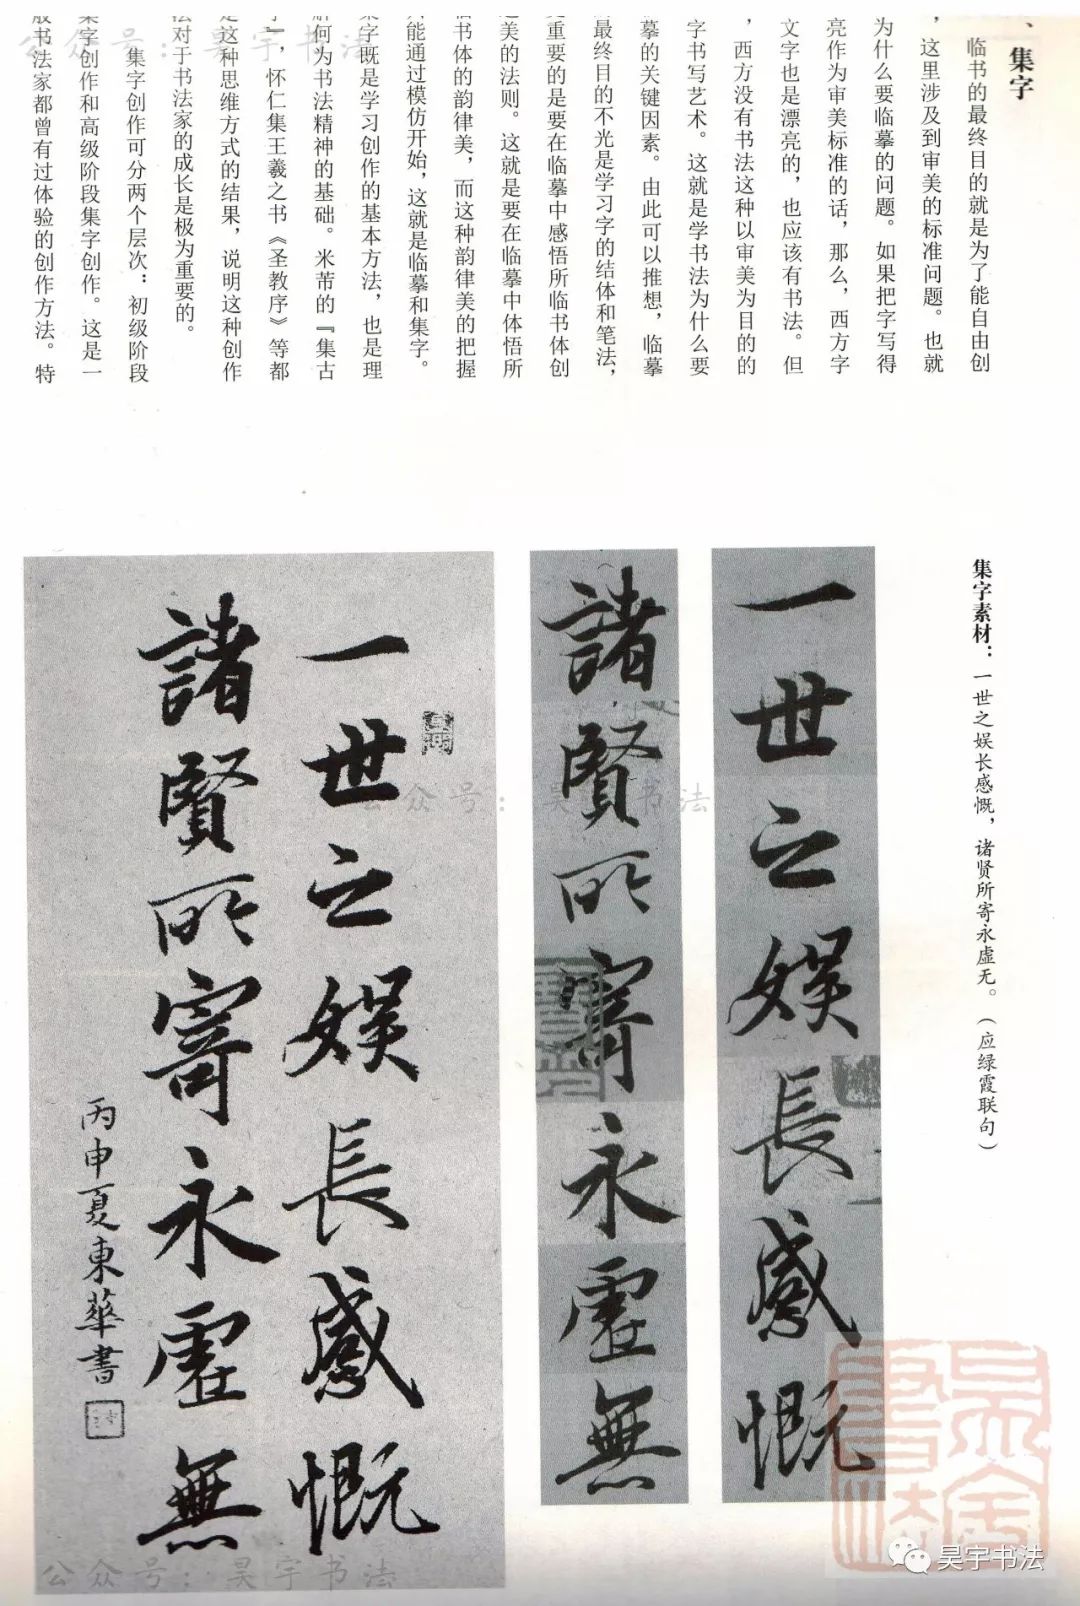 、集字
临书的最终目的就是为了能自由创
，这里涉及到审美的标准问题。也就
为什么要临摹的问题。如果把字写得
亮作为审美标准的话，那么，西方字
文字也是漂亮的，也应该有书法。但
，西方没有书法这种以审美为目的的
字书写艺术。这就是学书法为什么要
摹的关键因素。由此可以推想，临摹
最终目的不光是学习字的结体和笔法，
重要的是要在临摹中感悟所临书体创
美的法则。这就是要在临摹中体悟所
书体的韵律美，而这种韵律美的把握
能通过模仿开始，这就是临摹和集字。
字既是学习创作的基本方法，也是理
何为书法精神的基础。米芾的『集古
』，怀仁集王羲之书《圣教序》等都
这种思维方式的结果，说明这种创作
对于书法家的成长是极为重要的。
集字创作可分两个层次：初级阶段
字创作和高级阶段集字创作。这是一
般书法家都曾有过体验的创作方法。特
集字素材：一世之娱长感慨，诸贤所寄永虚无。（应绿霞联句）
一世之娱長感慨
諸賢所寄永虛無
一世之娱長感慨
諸賢所寄永虛無
丙申夏東華書
公众号：昊宇书法
公众号：昊宇书法
公众号：昊宇书法
昊宇书法